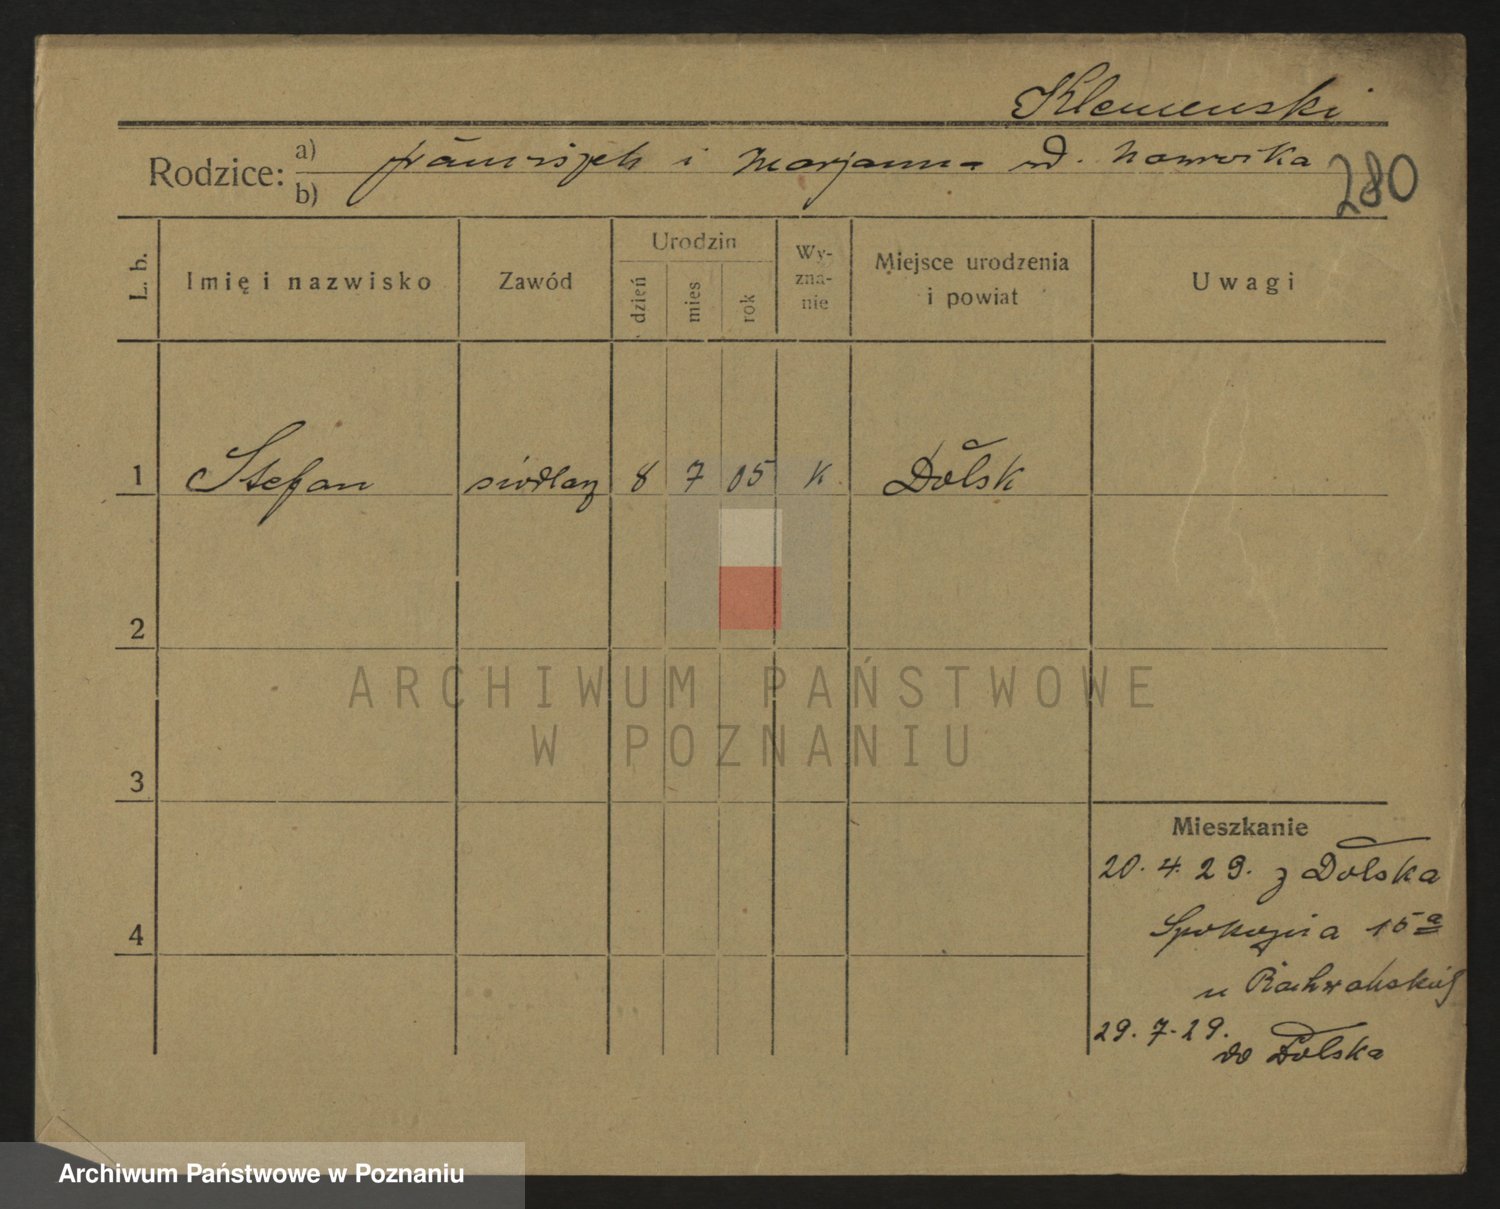 Klemenski
Rodzice: a) franciszek i Marjanna
b)
280
L. b.
Imię i nazwisko
Zawód
Urodzin
dzień
mies
rok
Wy-
zna-
nie
Miejsce urodzenia
i powiat
Uwagi
1 Stefan siodlarz 8 7 05 K Dolsk
2
3
4
Mieszkanie
20. 4. 29. z Dolska
Spokojna 15a
u
29. 7. 29.
do Dolska
ARCHIWUM PAŃSTWOWE
W POZNANIU
Archiwum Państwowe w Poznaniu